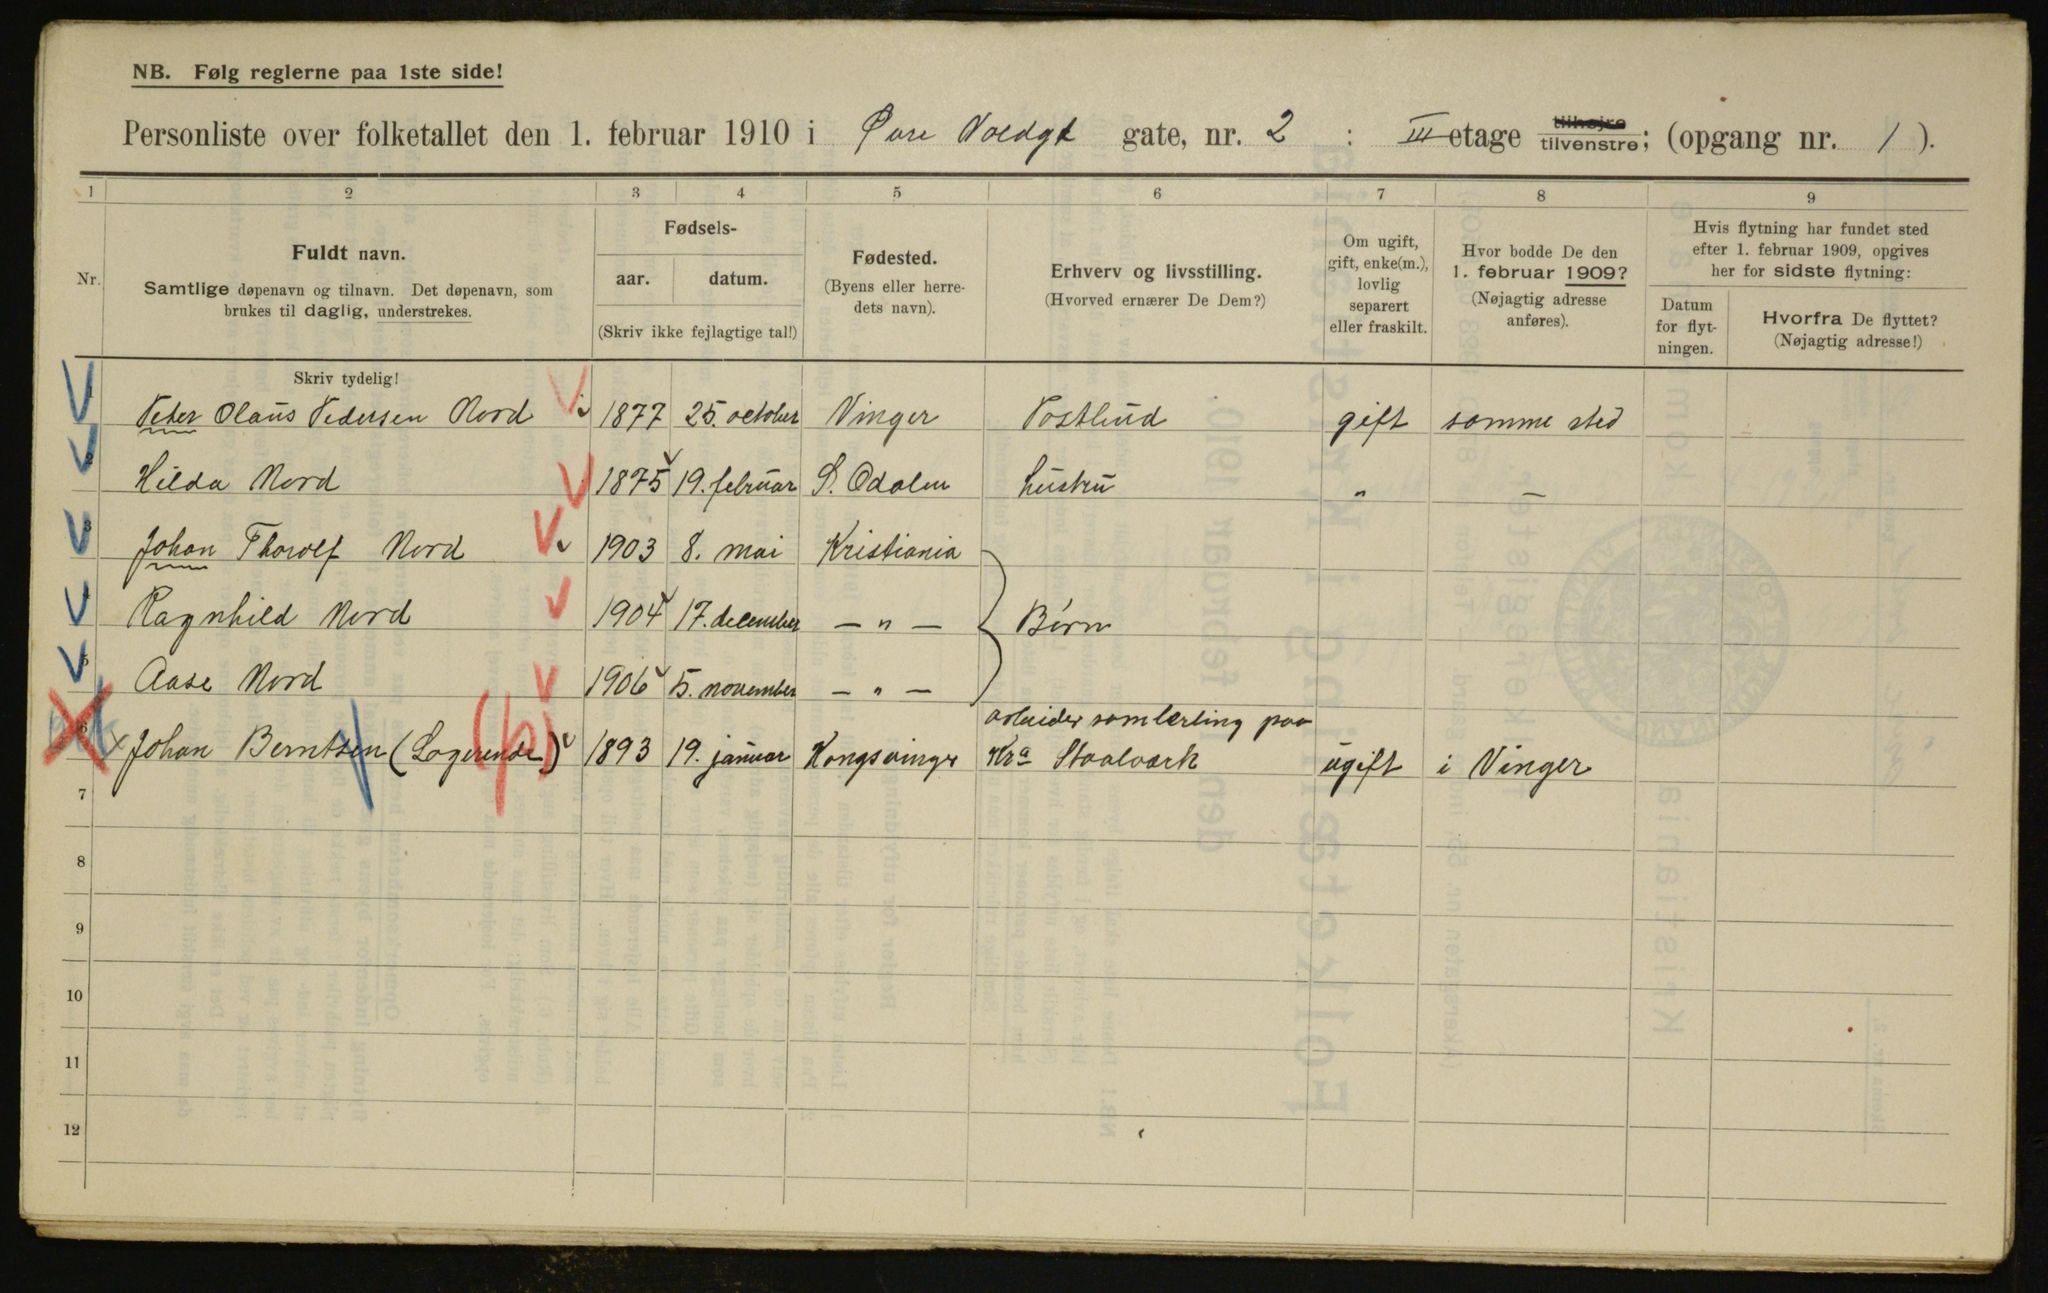 NB. Følg reglerne paa 1ste side!
Personliste over folketallet den 1. februar 1910 i Øvre Voldgt gate, nr. 2 : III etage tilhøjre tilvenstre; (opgang nr. 1 ).
1 2 3 4 5 6 7 8 9
Nr.
Fuldt navn.
Samtlige døpenavn og tilnavn. Det døpenavn, som
brukes til daglig, understrekes.
Fødsels-
aar. datum.
(Skriv ikke fejlagtige tal!)
Fødested.
(Byens eller herre-
dets navn).
Erhverv og livsstilling.
(Hvorved ernærer De Dem?)
Om ugift,
gift, enke(m.),
lovlig
separert
eller fraskilt.
Hvor bodde De den
1. februar 1909?
(Nøjagtig adresse
anføres).
Hvis flytning har fundet sted
efter 1. februar 1909, opgives
her for sidste flytning:
Datum
for flyt-
ningen.
Hvorfra De flyttet?
(Nøjagtig adresse!)
Skriv tydelig!
1 Peter Olaus Pedersen Nord 1877 25. october Vinger Postbud gift samme sted
2 Hilda Nord 1875 19. februar S. Odalen hustru " —
3 Johan Thorolf Nord 1903 8. mai Kristiania
4 Ragnhild Nord 1904 17. december — " — Børn
5 Aase Nord 1906 5. november — " —
6 x Johan Berntsen (Logerende) 1893 19. januar Kongsvinger arbeider som lærling paa
Kra Staalværk ugift i Vinger
7
8
9
10
11
12